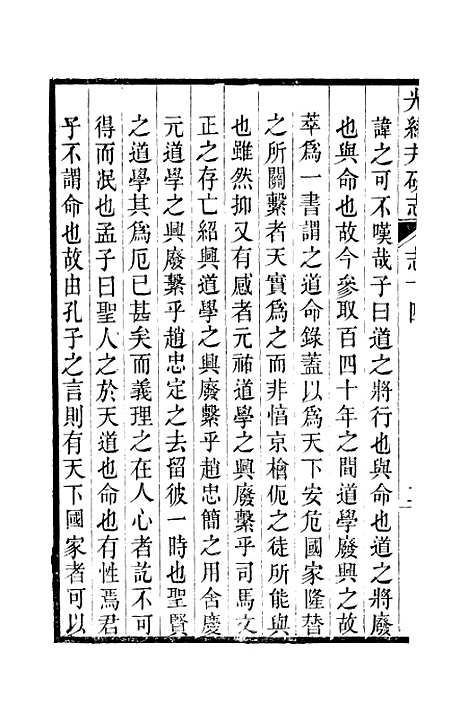 光緒井研志
志十四
諱之可不嘆哉子曰道之將行也與命也道之將廢
也與命也故今參取百四十年之間道學廢興之故
萃爲一書謂之道命錄蓋以爲天下安危國家隆替
之所關繫者天實爲之而非惇京檜侂之徒所能與
也雖然抑又有感者元祐道學之興廢繫乎司馬文
正之存亡紹興道學之興廢繫乎趙忠簡之用舍慶
元道學之興廢繫乎趙忠定之去留彼一時也聖賢
之道學其爲厄已甚矣而義理之在人心者訖不可
得而泯也孟子曰聖人之於天道也命也有性焉君
子不謂命也故由孔子之言則有天下國家者可以